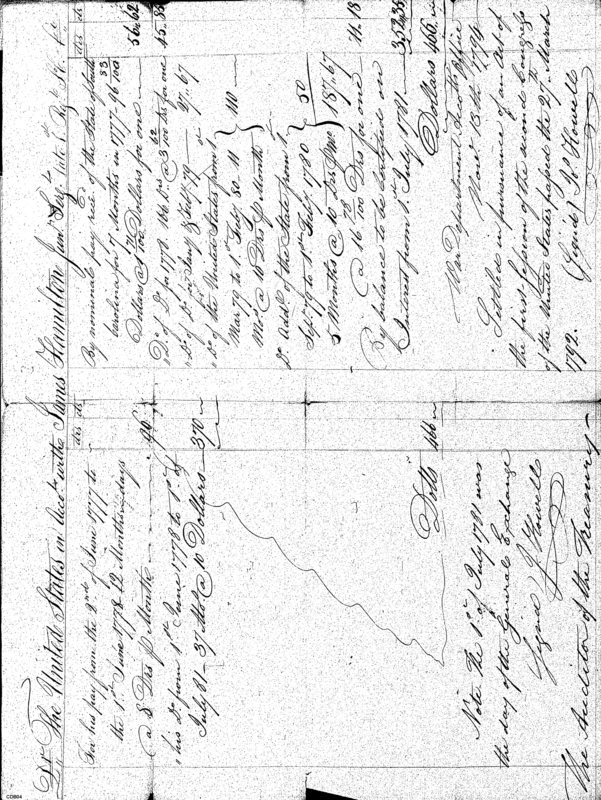 Dr The United States in acct with James Hamilton Junr Sergt late Regt
drs cts
For his pay from the 2nd of June 1777 to
the 1st June 1778 12 Months days
@ 8 Drs P Month 96
" his Do from 1st June 1778 to 1st of
July 81 37 Mo @ 10 Dollars 370
Dolls 466
Note The 1st of July 1781 was
the day of the General Exchange
Signed J Howell
The Auditor of the Treasury
drs cts
By nominate pay rec'd of the State of South
Carolina for 7 Months in 1777 96 83/100
Dollars @ 1 71/100 Dollars for one 56 62
" Do of Do for 1778 Drs @ 3 62/100 Drs for one 45 85
" Do of Do Jany & July 79 27 67
" Do of the United States from 1st
Mar 79 to 1st July 80 11
Mos @ 10 Drs P Month 110
Do Addl of the State from 1st
Sept 79 to 1st July 1780 50
5 Months @ 10 Drs P Mo 187 67
@ 16 78/100 Drs for one 11 18
By balance to be certified on
Interest from 1st July 1781 352 35
Dollars 466
War Department Accts Office
Novr 13th 1794
Settled in pursuance of an Act of
the first Session of the second Congress
of the United States passed the 27th March
1792. Signed J Howell
CD804